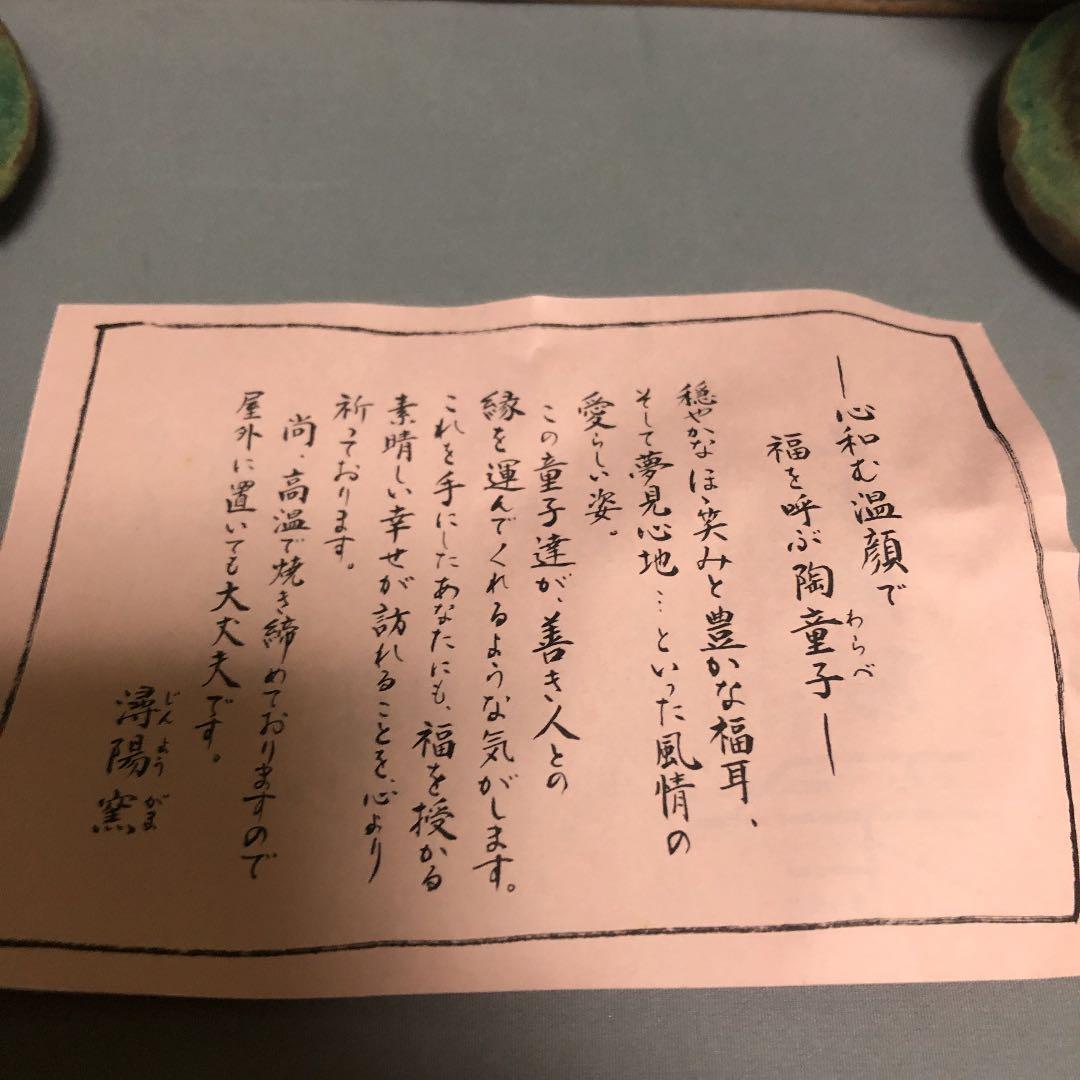 ―心和む温顔で
福を呼ぶ陶童子―
わらべ
穏やかなほゝ笑みと豊かな福耳、
そして夢見心地…といった風情の
愛らしい姿。
この童子達が、善き人との
縁を運んでくれるような気がします。
これを手にしたあなたにも、福を授かる
素晴しい幸せが訪れることを、心より
祈っております。
尚、高温で焼き締めておりますので
屋外に置いても大丈夫です。
じんようがま
潯陽窯